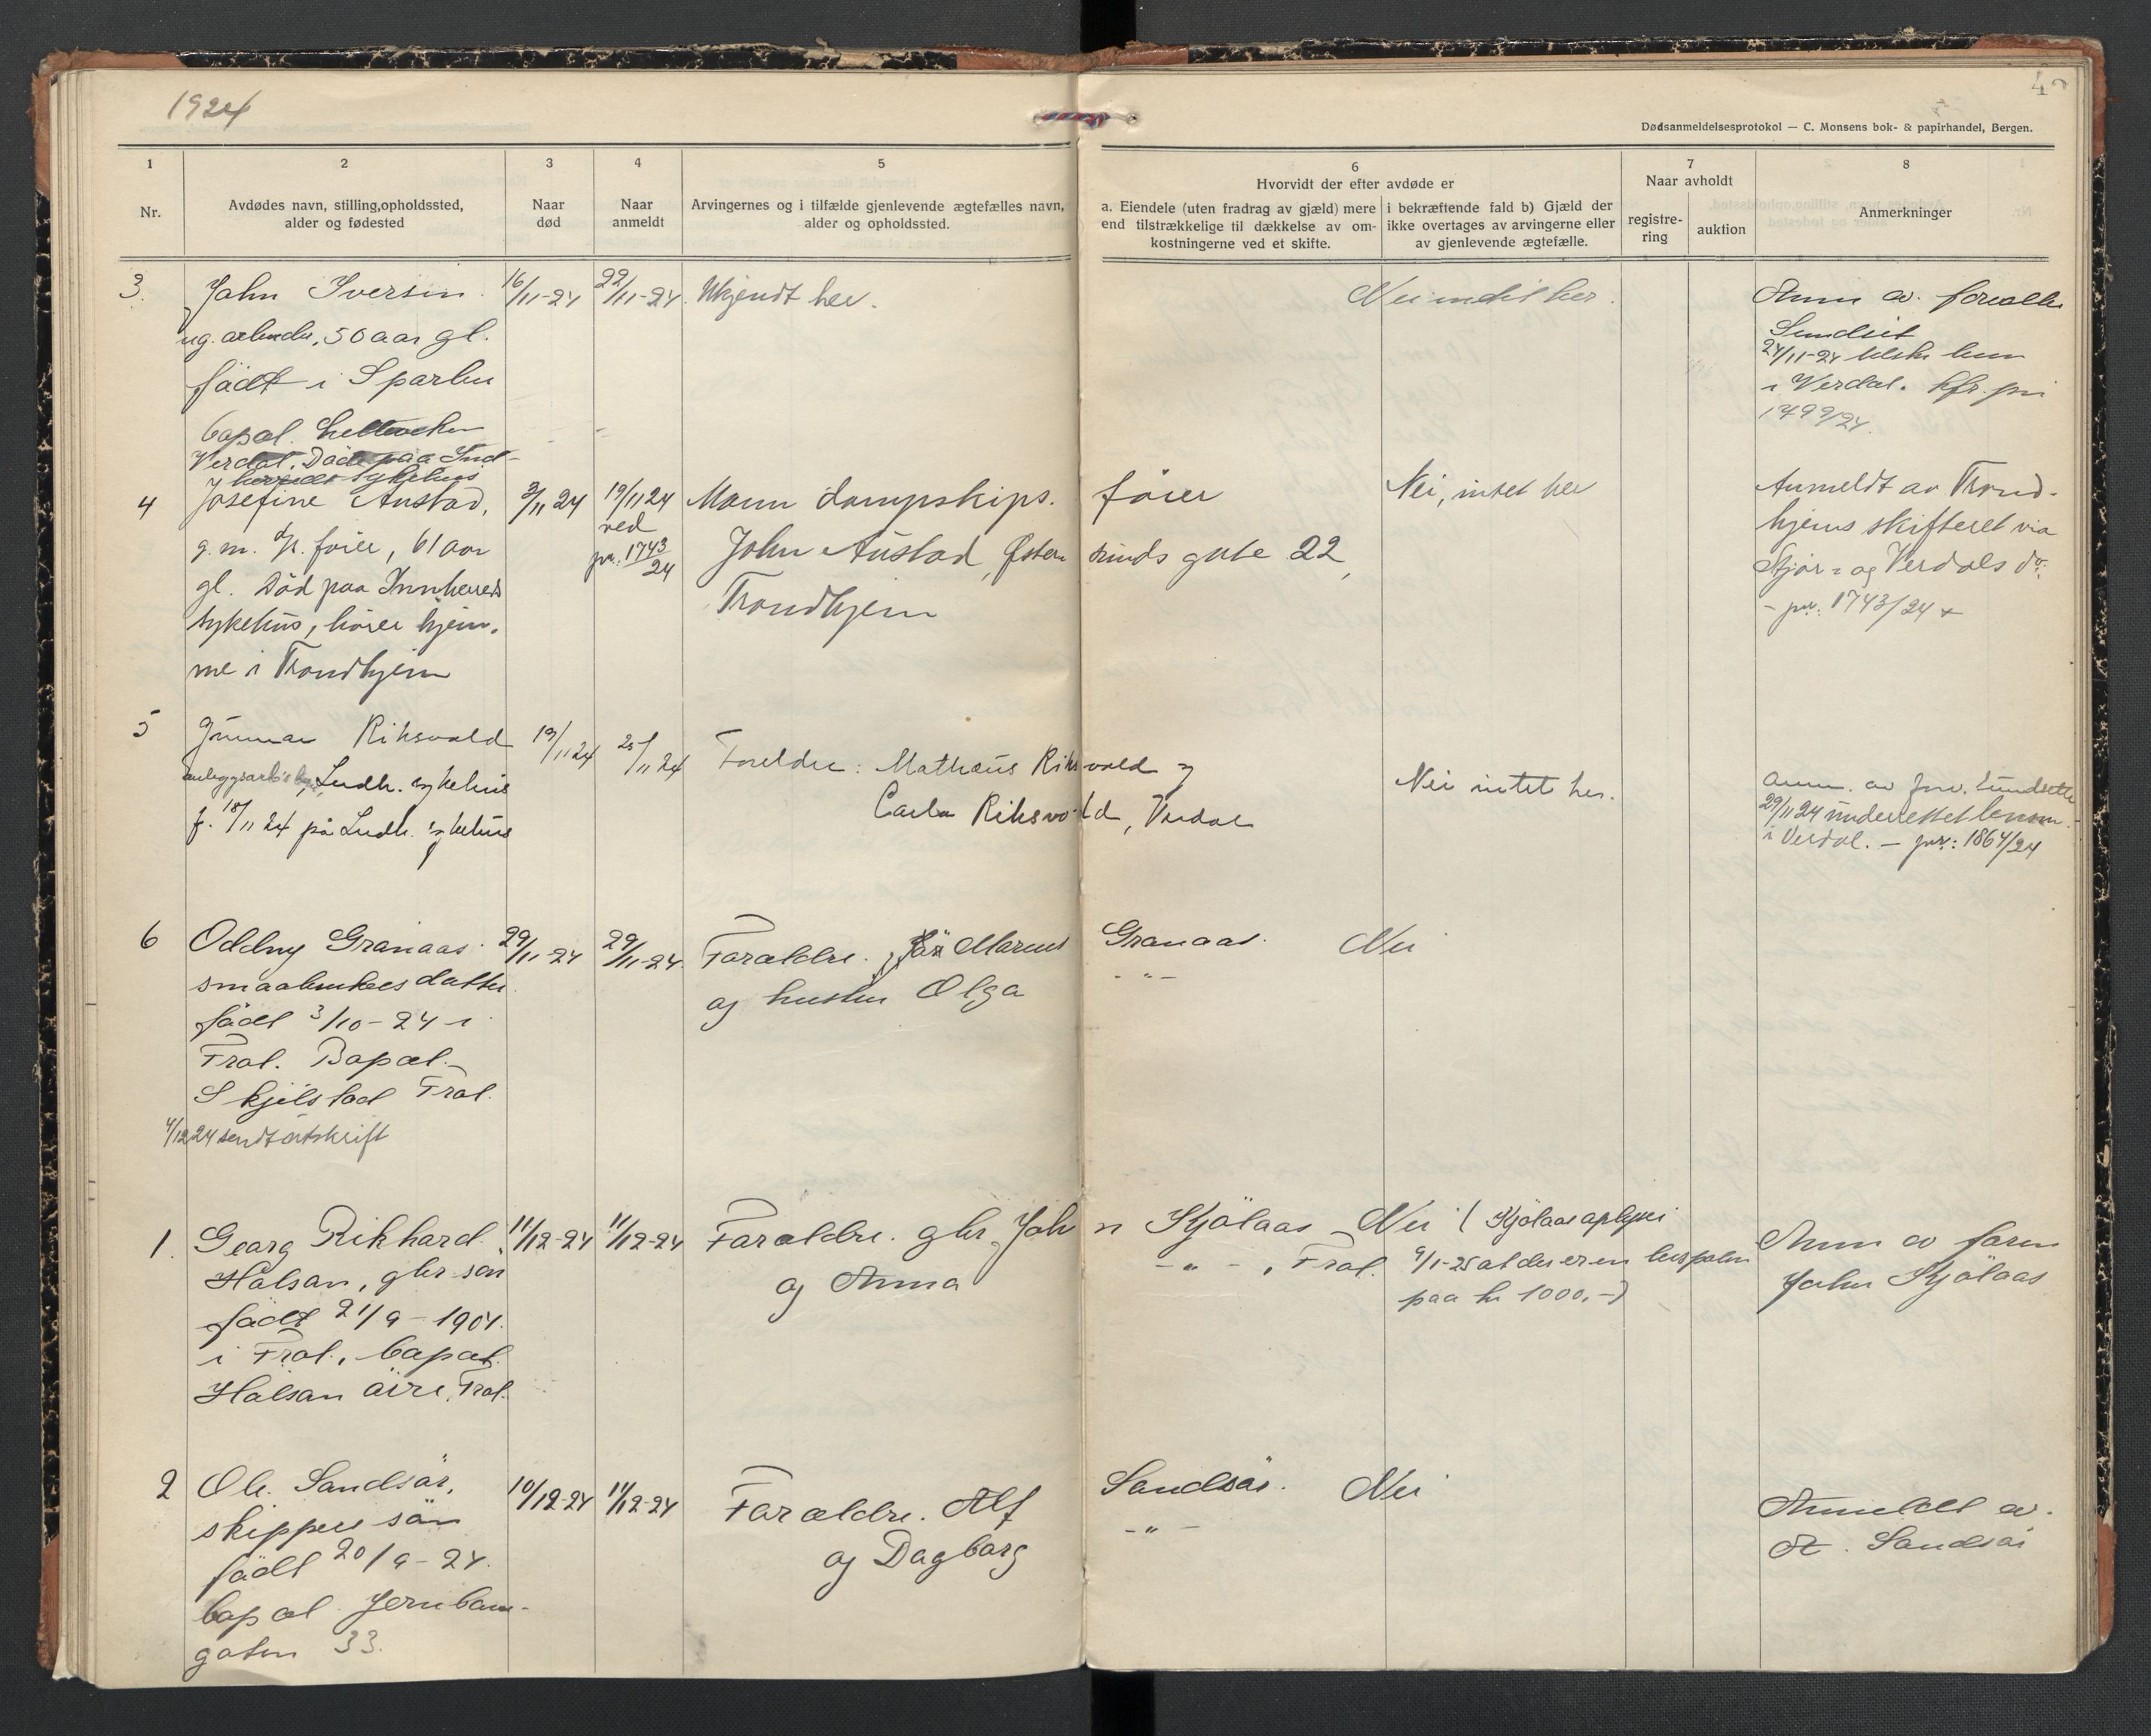 1924
42
Dødsanmeldelsesprotokol — C. Monsens bok- & papirhandel, Bergen.
1
Nr.
2
Avdødes navn, stilling, opholdssted,
alder og fødested
3
Naar
død
4
Naar
anmeldt
5
Arvingernes og i tilfælde gjenlevende ægtefælles navn,
alder og opholdssted.
6
Hvorvidt der efter avdøde er
a. Eiendele (uten fradrag av gjæld) mere
end tilstrækkelige til dækkelse av om-
kostningerne ved et skifte.
i bekræftende fald b) Gjæld der
ikke overtages av arvingerne eller
av gjenlevende ægtefælle.
7
Naar avholdt
registre-
ring
auktion
8
Anmerkninger
3.
John Iversen.
ug. arbeider, 50 aar gl.
født i Sparbu
bopæl.
Verdal. Død paa Ind-
herreds sykehus
16/11-24
22/11-24
Ukjendt her.
Nei intet her.
Anm av. forvalter
Sundset
24/11-24 utskr lensm
i Verdal. kfr. jnr
1799/24.
4
Josefine Austad,
g.m. d/s. fører, 61 aar
gl. Død paa Innherreds
sykehus, hører hjem-
me i Trondhjem
3/11 24
19/11 24
ved
jnr. 1743/24
Mann dampskips. fører
John Austad, Østersunds gate 22,
Trondhjem
Nei, intet her
Anmeldt av Trond-
hjems skifteret via
Stjør- og Verdals do:
- jnr. 1743/24
5
Gunnar Riksvold
anleggsarb's, Indh. sykehus
f. 18/11 24 på Indh. sykehus
19/11 24
25/11 24
Foreldre: Mathæus Riksvold og
Carla Riksvold, Verdal
Nei intet her.
Anm. av forv. Sundseth
29/11 24 underettet lensm.
i Verdal. — jnr: 1864/24
6
Oddny Granaas.
smaabrukers datter
født 3/10-24 i
Frol. Bopæl.
Skjelstad Frol.
4/12 24 sendt utskrift
29/11-24
29/11-24
Forældre. Marius Granaas.
og hustru Olga -"-
Nei
1.
Georg Rikhard
Halsan, gbr søn
født 21/9-1904.
i Frol., bopæl.
Halsan øvre, Frol.
11/12-24
11/12-24
Forældre. gbr. John Kjølaas
og Anna -"-, Frol.
Nei (Kjølaas oplyser
9/1-25 at der er en livspolise
paa kr 1000.-)
Anm av faren
John Kjølaas
2
Ole Sandsør,
skippers søn
født 20/9-24.
bopæl Jernbane-
gaten 33.
10/12-24
11/12-24
Forældre. Alf Sandsør.
og Dagborg -"-
Nei
Anmeldt av.
A. Sandsør